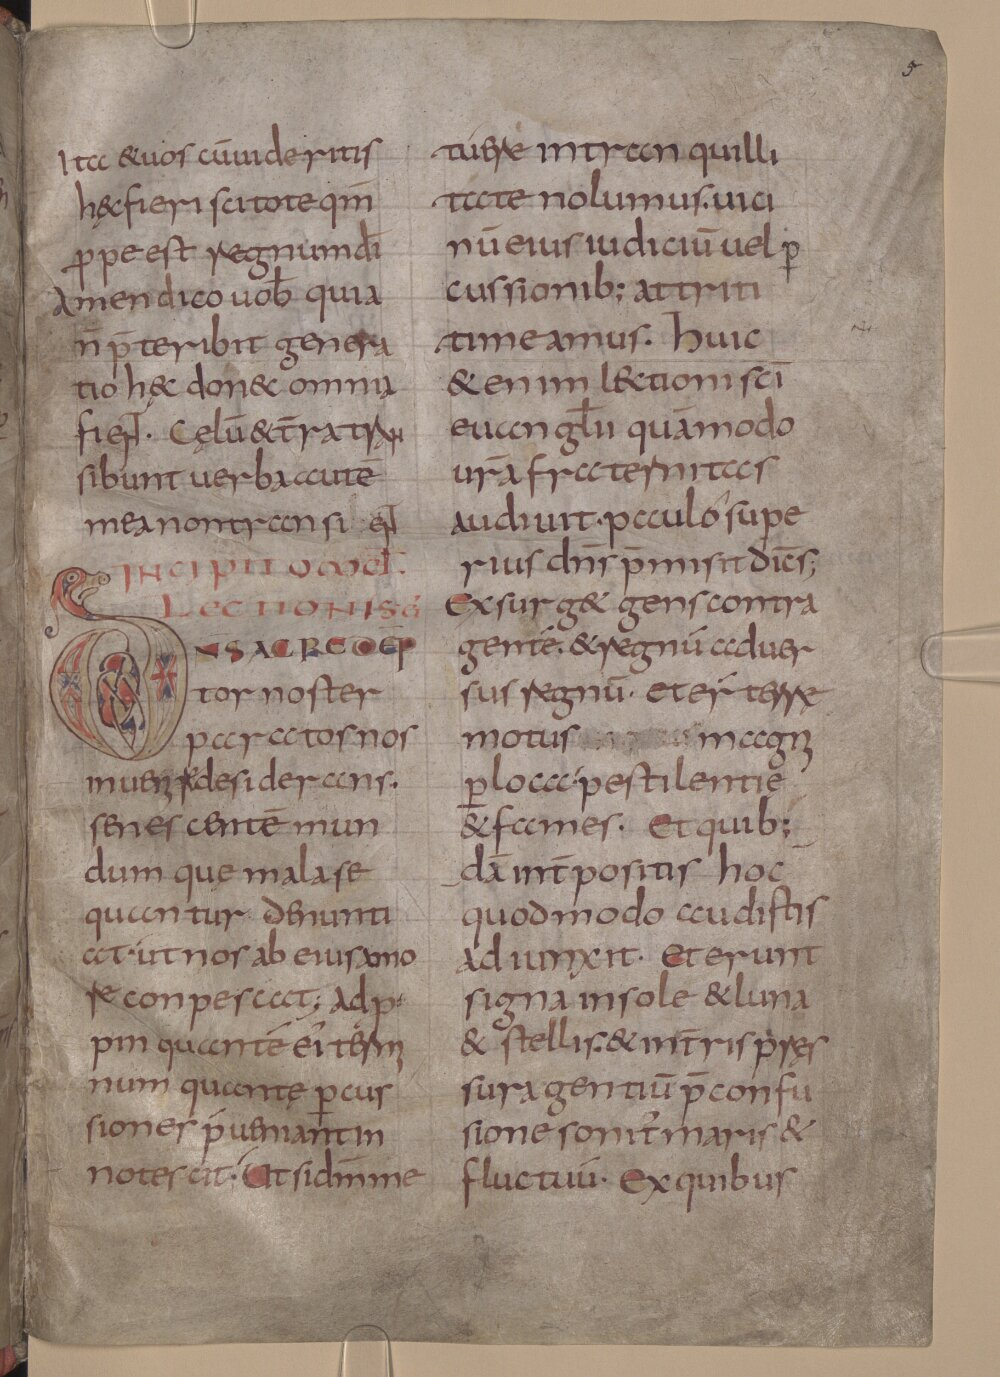 5
Ita & uos cū uideritis
hęc fieri scitote qm̄
ꝓpe est regnum dī
Amen dico uob̄ quia
n̄ p̄teribit genera
tio hęc donec omnia
fient. Cęlū & t̄ra tran
sibunt uerba autē
mea non transient
INCIPIT
LECTIONIS
DN̄S AC REDEMP
tor noster
paratos nos
inuenire desiderans.
senescentē mun
dum que mala se
quantur denunti
at. ut nos ab eius amo
re conpescat; Adp
pin quantē ei termi
num quante ꝑcus
siones p̄ueniant in
notescit. Ut si dm̄ me
tuere in tran quilli
tate nolumus. uici
nū eius iudiciū uel ꝑ
cussionib; attriti
timeamus. Huic
& enim lectioni sc̄i
euangl̄ii quā modo
ur̄a fraternitas
audiuit. paulo supe
rius dn̄s p̄misit dicēs;
Exsurg& gens contra
gentē. & regnū aduer
sus regnū. et er̄ terre
motus magni
ꝑ loca. pestilentię
& fames. Et quib;
dā int̄positis hoc
quod modo audistis
adiunxit. Et erunt
signa in sole & luna
& stellis. & in t̄ris pres
sura gentiū p̄ confu
sione sonit maris &
fluctuū. Ex quibus